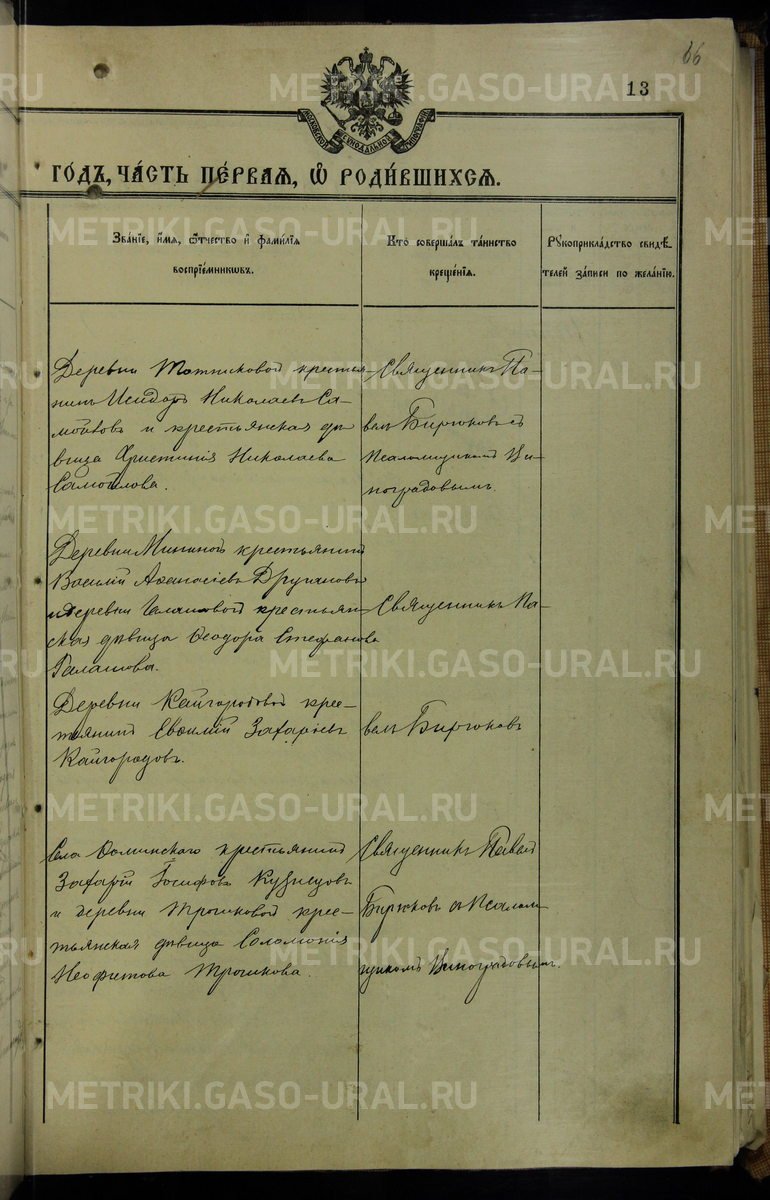 66
13
МОСКОВСКОЙ СѴНОДАЛЬНОЙ ТИПОГРАФІИ
ГО́ДЪ, ЧА́СТЬ ПЕ́РВАѦ, Ѡ РОДИ́ВШИХСѦ.
Зва́нїе, и́мѧ, ѻ҆́тчество и҆ фами́лїѧ
воспрїе́мникѡвъ.
Кто̀ соверша́лъ та́инство
креще́нїѧ.
Рꙋкоприкла́дство свидѣ́-
телей за́писи по жела́нїю.
Деревни крестья-
нинъ Исидоръ Николаевъ Са-
мойловъ и крестьянская дѣ-
вица Христинія Николаева
Самойлова.
Священникъ Па-
велъ Бирюковъ съ
Псаломщикомъ Ви-
ноградовымъ.
Деревни Мининой крестьянинъ
Василій Аѳанасіевъ Другановъ
и деревни Галашовой крестьян-
ская дѣвица Ѳеодора Стефанова
Галашова.
Деревни Кайгородовой крес-
тьянинъ Евсилій Захаріевъ
Кайгородовъ.
Священникъ Па-
велъ Бирюковъ
Села Ѳоминскаго крестьянинъ
Захарій Іосифовъ Кузнецовъ
и деревни Трошковой крес-
тьянская дѣвица Соломонія
Неофитова Трошкова.
Священникъ Павелъ
Бирюковъ съ Псалом-
щикомъ Виноградовымъ.
METRIKI.GASO-URAL.RU